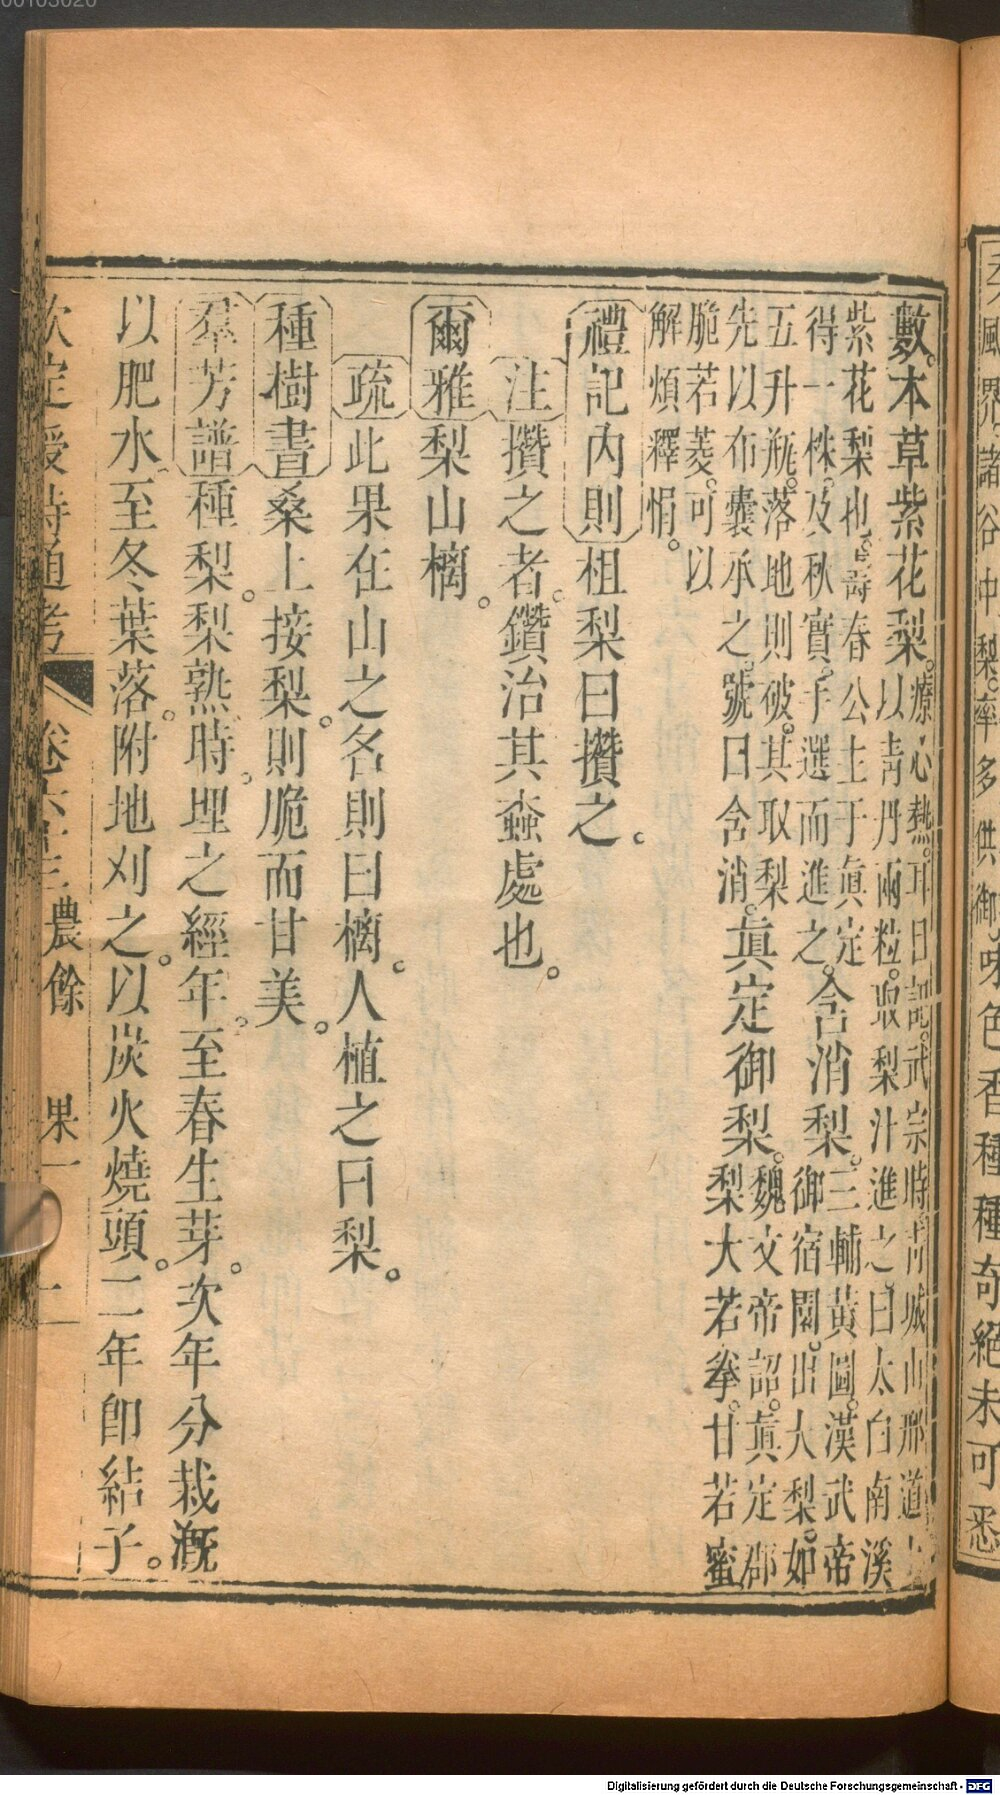 天風界。諸谷中梨。率多供御。味色香種種奇絕未可悉
數。本草紫花梨。療心熱。耳目記。武宗時靑城山邢道
以靑丹兩粒。取梨汁進之。曰太白南溪
紫花梨也。壽春公主于眞定
得一株。及秋實。手選而進之。含消梨。三輔黃圖。漢武帝
御宿園。出大梨。如
五升瓶。落地則破。其取梨
先以布囊承之。號曰含消。眞定御梨。魏文帝詔。眞定郡
梨大若拳。甘若蜜
脆若菱。可以
解煩釋悁。
禮記內則柤梨曰攢之。
注攢之者。鑽治其蟲處也。
爾雅梨山樆。
疏此果在山之名則曰樆。人植之曰梨。
種樹書桑上接梨。則脆而甘美。
羣芳譜種梨。梨熟時。埋之經年。至春生芽。次年分栽漑
以肥水。至冬葉落。附地刈之。以炭火燒頭。二年卽結子。
欽定授時通考 卷六十三農餘 果一 二
00103020
Digitalisierung gefördert durch die Deutsche Forschungsgemeinschaft - DFG